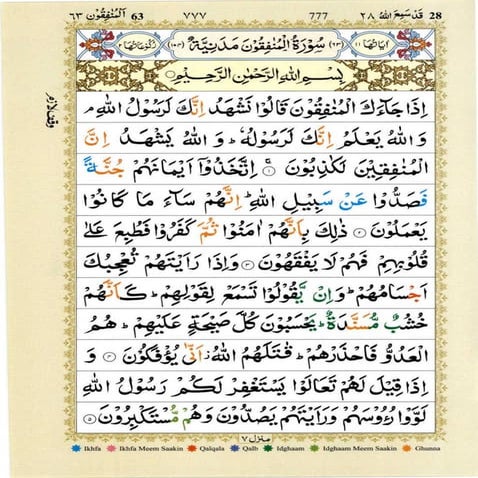 ٦٣ اَلْمُنٰفِقُوْن 63 ٧٧٧ 777 قَدْ سَمِعَ اللّٰهُ ٢٨ 28
اٰيَاتُهَا ١١ (٦٣) سُوْرَةُ الْمُنٰفِقُوْنَ مَدَنِيَّةٌ (١٠٤) رُكُوْعَاتُهَا ٢
بِسْمِ اللّٰهِ الرَّحْمٰنِ الرَّحِيْمِ
اِذَا جَآءَكَ الْمُنٰفِقُوْنَ قَالُوْا نَشْهَدُ اِنَّكَ لَرَسُوْلُ اللّٰهِ ۘ
وَ اللّٰهُ يَعْلَمُ اِنَّكَ لَرَسُوْلُهٗ ؕ وَ اللّٰهُ يَشْهَدُ اِنَّ
الْمُنٰفِقِيْنَ لَكٰذِبُوْنَ ۚ ١ اِتَّخَذُوْۤا اَيْمَانَهُمْ جُنَّةً
فَصَدُّوْا عَنْ سَبِيْلِ اللّٰهِ ؕ اِنَّهُمْ سَآءَ مَا كَانُوْا
يَعْمَلُوْنَ ٢ ذٰلِكَ بِاَنَّهُمْ اٰمَنُوْا ثُمَّ كَفَرُوْا فَطُبِعَ عَلٰى
قُلُوْبِهِمْ فَهُمْ لَا يَفْقَهُوْنَ ٣ وَاِذَا رَاَيْتَهُمْ تُعْجِبُكَ
اَجْسَامُهُمْ ؕ وَاِنْ يَّقُوْلُوْا تَسْمَعْ لِقَوْلِهِمْ ؕ كَاَنَّهُمْ
خُشُبٌ مُّسَنَّدَةٌ ؕ يَحْسَبُوْنَ كُلَّ صَيْحَةٍ عَلَيْهِمْ ؕ هُمُ
الْعَدُوُّ فَاحْذَرْهُمْ ؕ قٰتَلَهُمُ اللّٰهُ ۫ اَنّٰى يُؤْفَكُوْنَ ٤ وَ
اِذَا قِيْلَ لَهُمْ تَعَالَوْا يَسْتَغْفِرْ لَكُمْ رَسُوْلُ اللّٰهِ
لَوَّوْا رُءُوْسَهُمْ وَرَاَيْتَهُمْ يَصُدُّوْنَ وَهُمْ مُّسْتَكْبِرُوْنَ ٥
وقف لازم
منزل ٧
Ikhfa Ikhfa Meem Saakin Qalqala Qalb Idghaam Idghaam Meem Saakin Ghunna